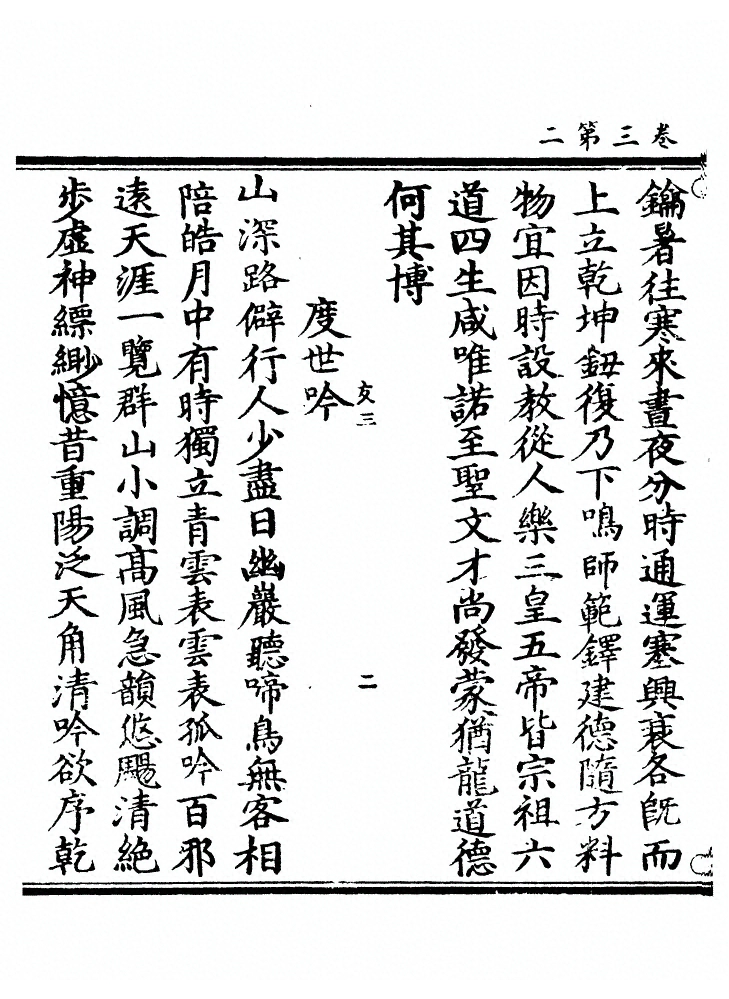 卷三第二
鑰暑往寒來晝夜分時通運塞興衰各既而
上立乾坤鈕復乃下鳴師範鐸建德隨方料
物宜因時設教從人樂三皇五帝皆宗祖六
道四生咸唯諾至聖文才尚發蒙猶龍道德
何其博
度世吟
友三
二
山深路僻行人少盡日幽巖聽啼鳥無客相
陪皓月中有時獨立青雲表雲表孤吟百邪
遠天涯一覽群山小調高風急韻悠颺清絕
步虛神縹緲憶昔重陽泛天角清吟欲序乾